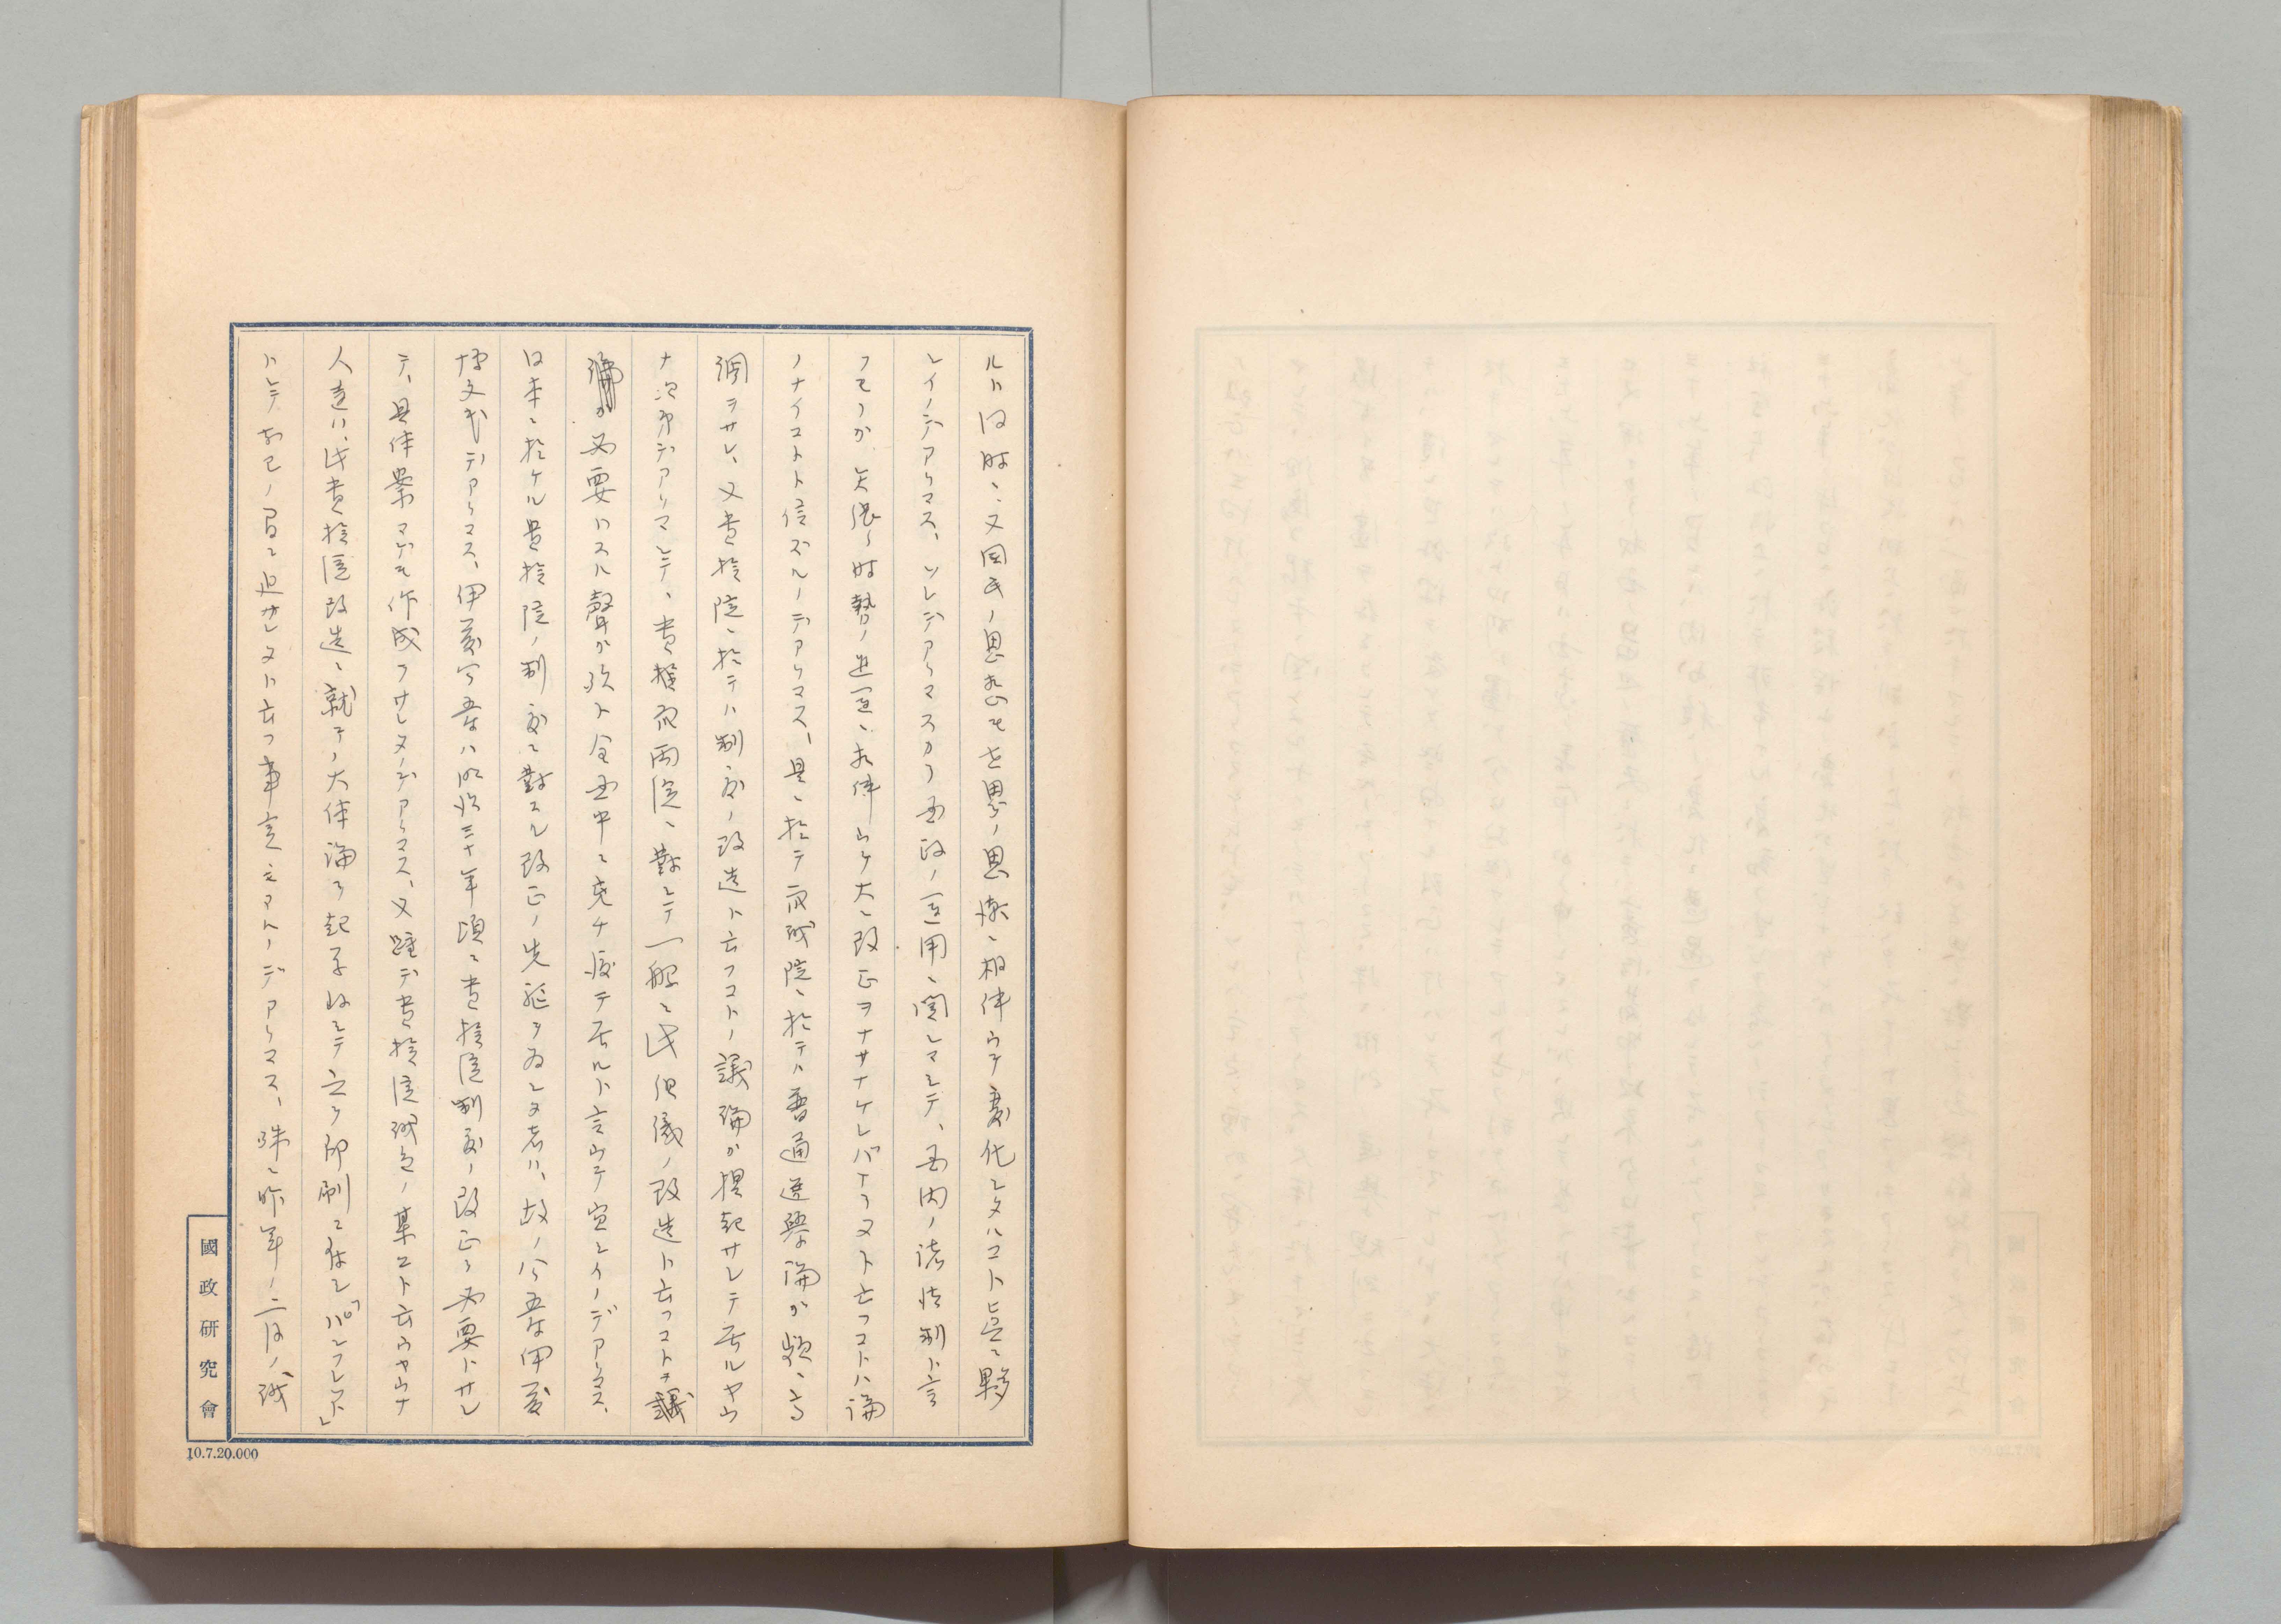 ルト同時ニ、又国民ノ思想モ世界ノ思潮ニ相伴ウテ変化シタルコト実ニ夥
シイノデアリマス、ソレデアリマスカラ国政ノ運用ニ関シマシテ、国内ノ諸法制ト言
フモノガ矢張リ時勢ノ進運ニ相伴ウケ大ニ改正ヲナサナケレバナラヌト云フコトハ論
ノナイコトト信ズルノデアリマス、是ニ於テ衆議院ニ於テハ普通選挙論ガ頻ニ高
調ヲサレ、又貴族院ニ於テハ制度ノ改造ト云フコトノ議論ガ提起サレテ居ルヤウ
ナ次第デアリマシテ、貴族衆両院ニ対シテ一般ニ此組織ノ改造ト云フコトヲ議
論ガ必要トスル声ガ殆ト全国中ニ充チ渡テ居ルト言ウテ宜シイノデアリマス、
日本ニ於ケル貴族院ノ制度ニ対スル改正ノ先駆ヲ為シタ者ハ、故ノ公爵伊藤
博文氏デアリマス、伊藤公爵ハ明治三十年頃ニ貴族院制度ノ改正ヲ必要トサレ
テ、具体案マデモ作成ヲサレタノデアリマス、又踵デ貴族院議員ノ某々ト云ウヤウナ
人達ハ、此貴族院改造ニ就テノ大体論ヲ起草致シテ之ヲ印刷ニ付シ「パンフレツト」
トシテ知己ノ間ニ廻サレタト云フ事実モアルノデアリマス、殊ニ昨年ノ二月ノ議
國政研究會
10.7.20.000